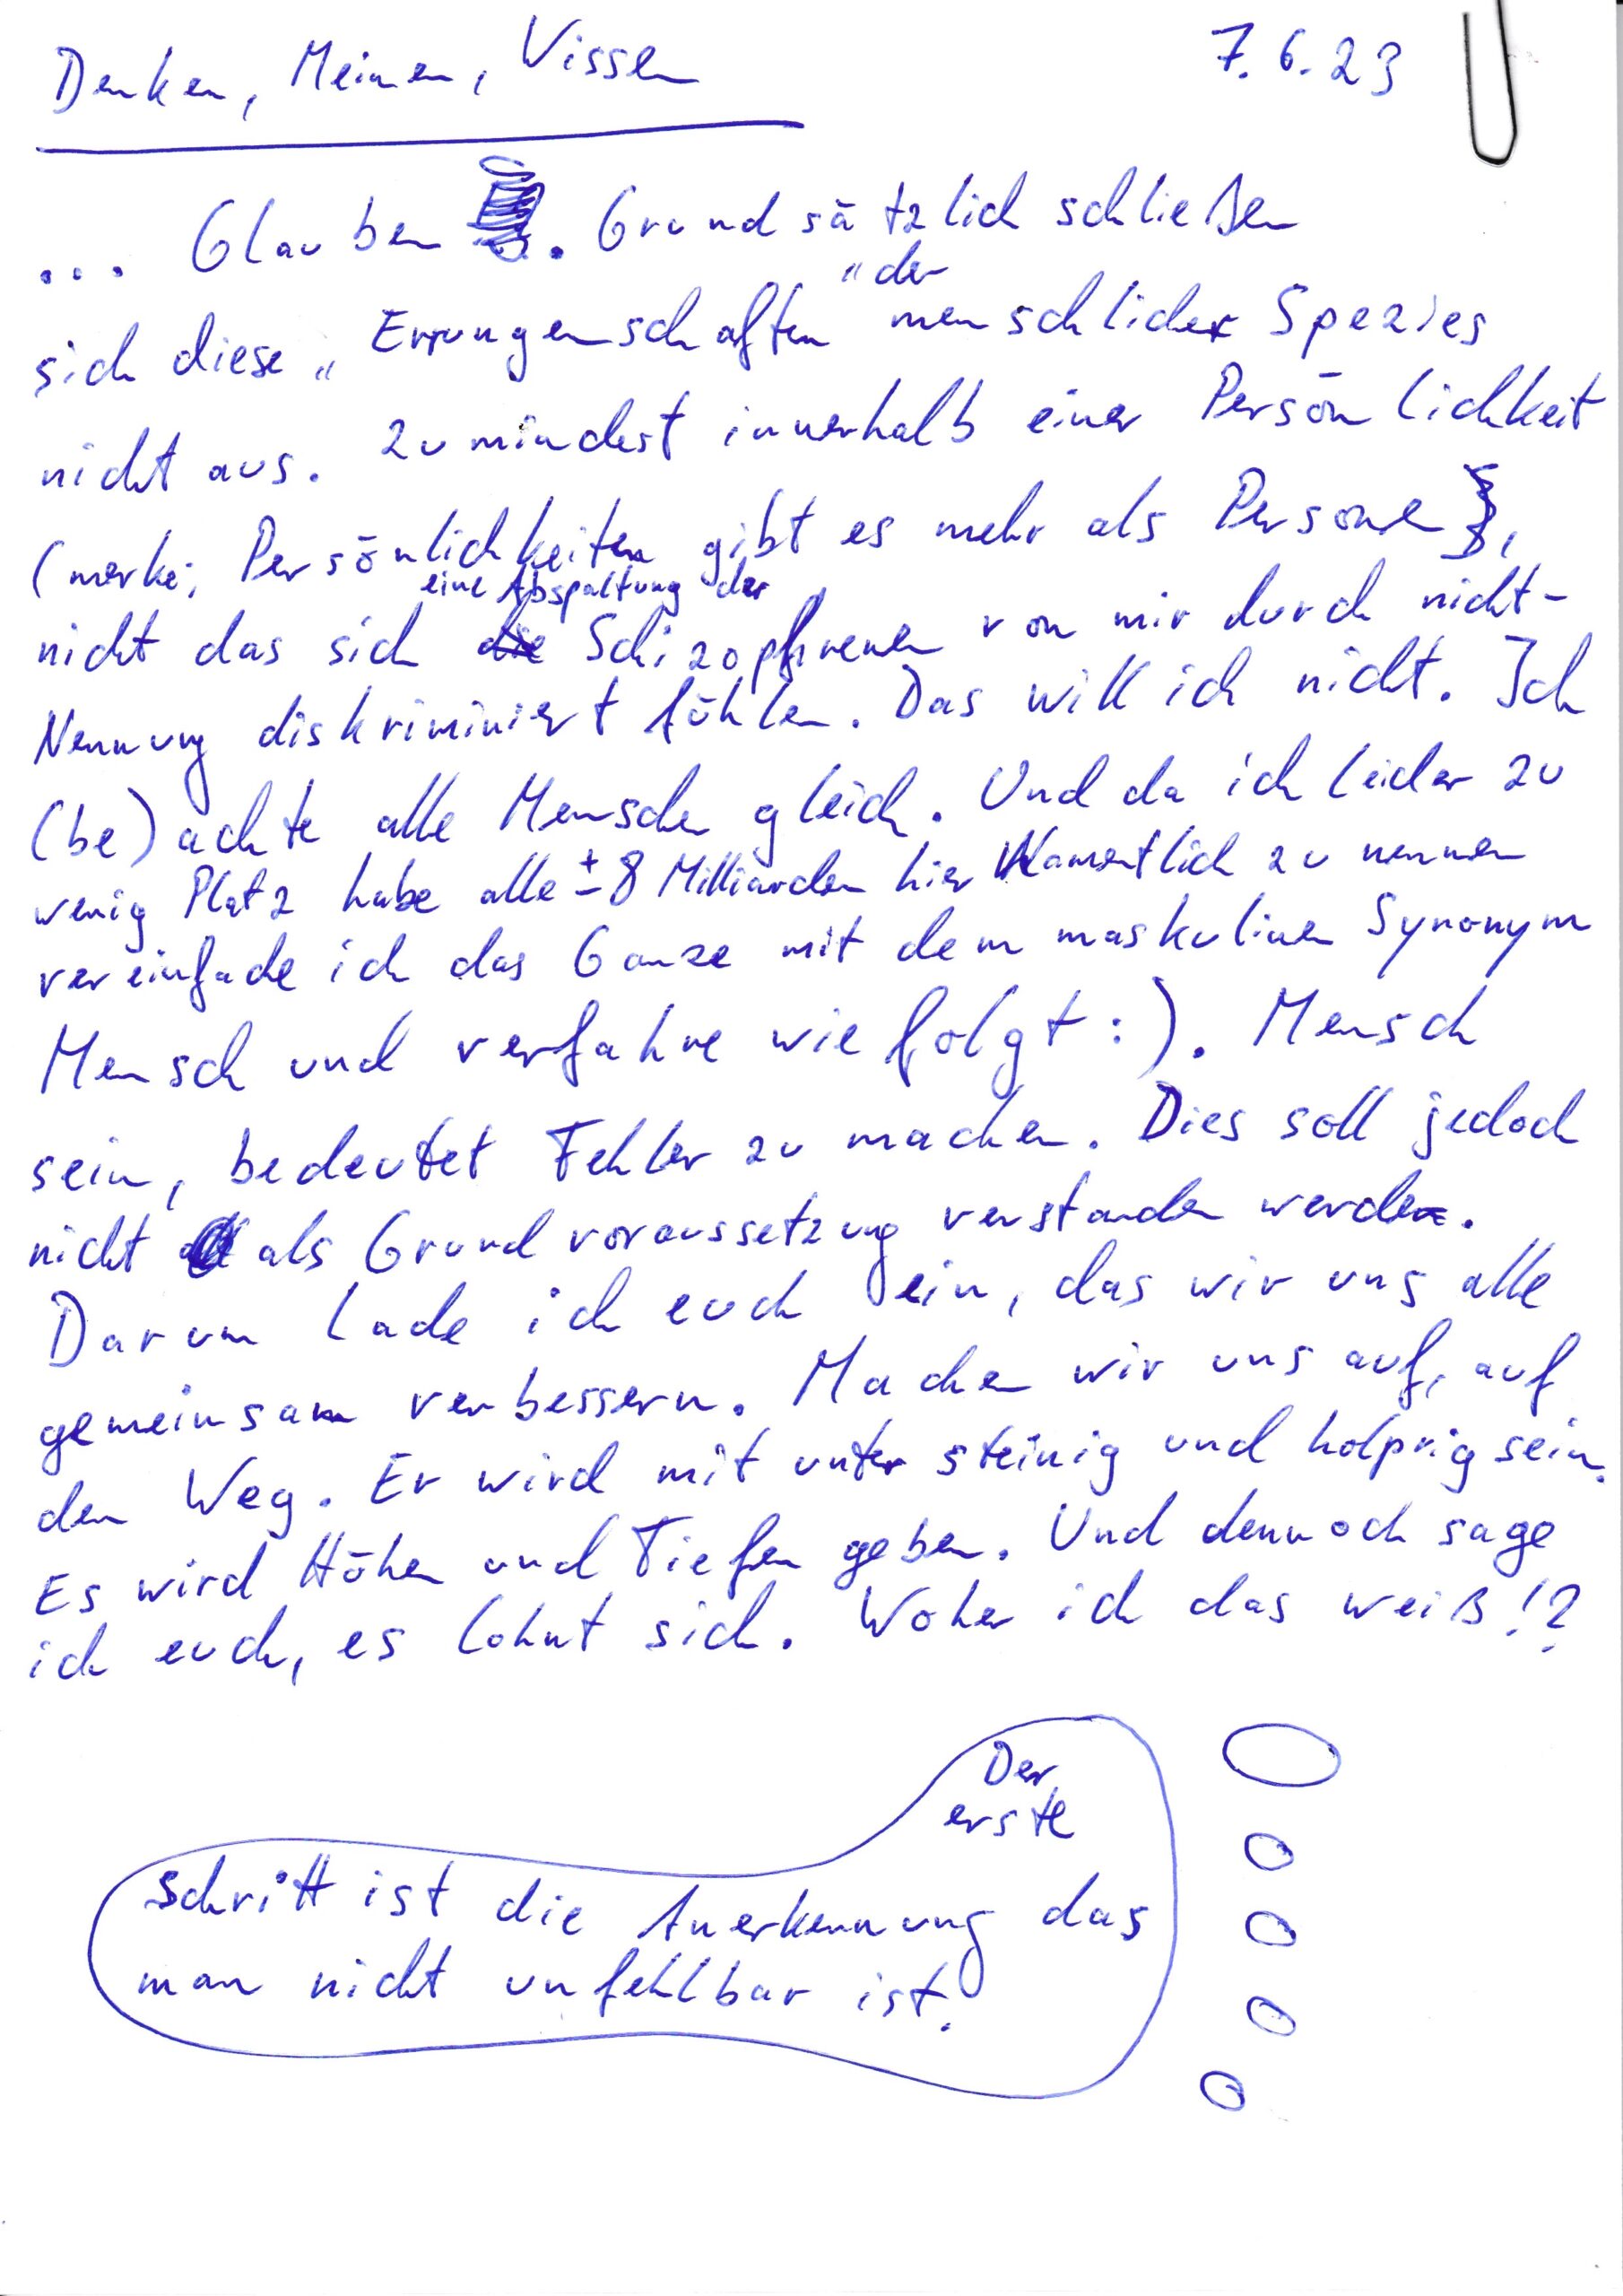 Denken, Meinen, Wissen 7.6.23
... Glauben. Grundsätzlich schließen
sich diese „Errungenschaften“ der menschlichen Spezies
nicht aus. Zumindest innerhalb einer Persönlichkeit
(merke; Persönlichkeiten gibt es mehr als Personen,
nicht das sich eine Abspaltung der Schizophrenen von mir durch nicht-
Nennung diskriminiert fühlen. Das will ich nicht. Ich
(be)achte alle Menschen gleich. Und da ich leider zu
wenig Platz habe alle ± 8 Milliarden hier Namentlich zu nennen
vereinfache ich das Ganze mit dem maskulinen Synonym
Mensch und verfahre wie folgt:). Mensch
sein, bedeutet Fehler zu machen. Dies soll jedoch
nicht als Grundvoraussetzung verstanden werden.
Darum lade ich euch ein, das wir uns alle
gemeinsam verbessern. Machen wir uns auf, auf
den Weg. Er wird mit unter steinig und holprig sein.
Es wird Höhen und Tiefen geben. Und dennoch sage
ich euch, es lohnt sich. Woher ich das weiß!?
Der
erste
Schritt ist die Anerkennung das
man nicht unfehlbar ist.